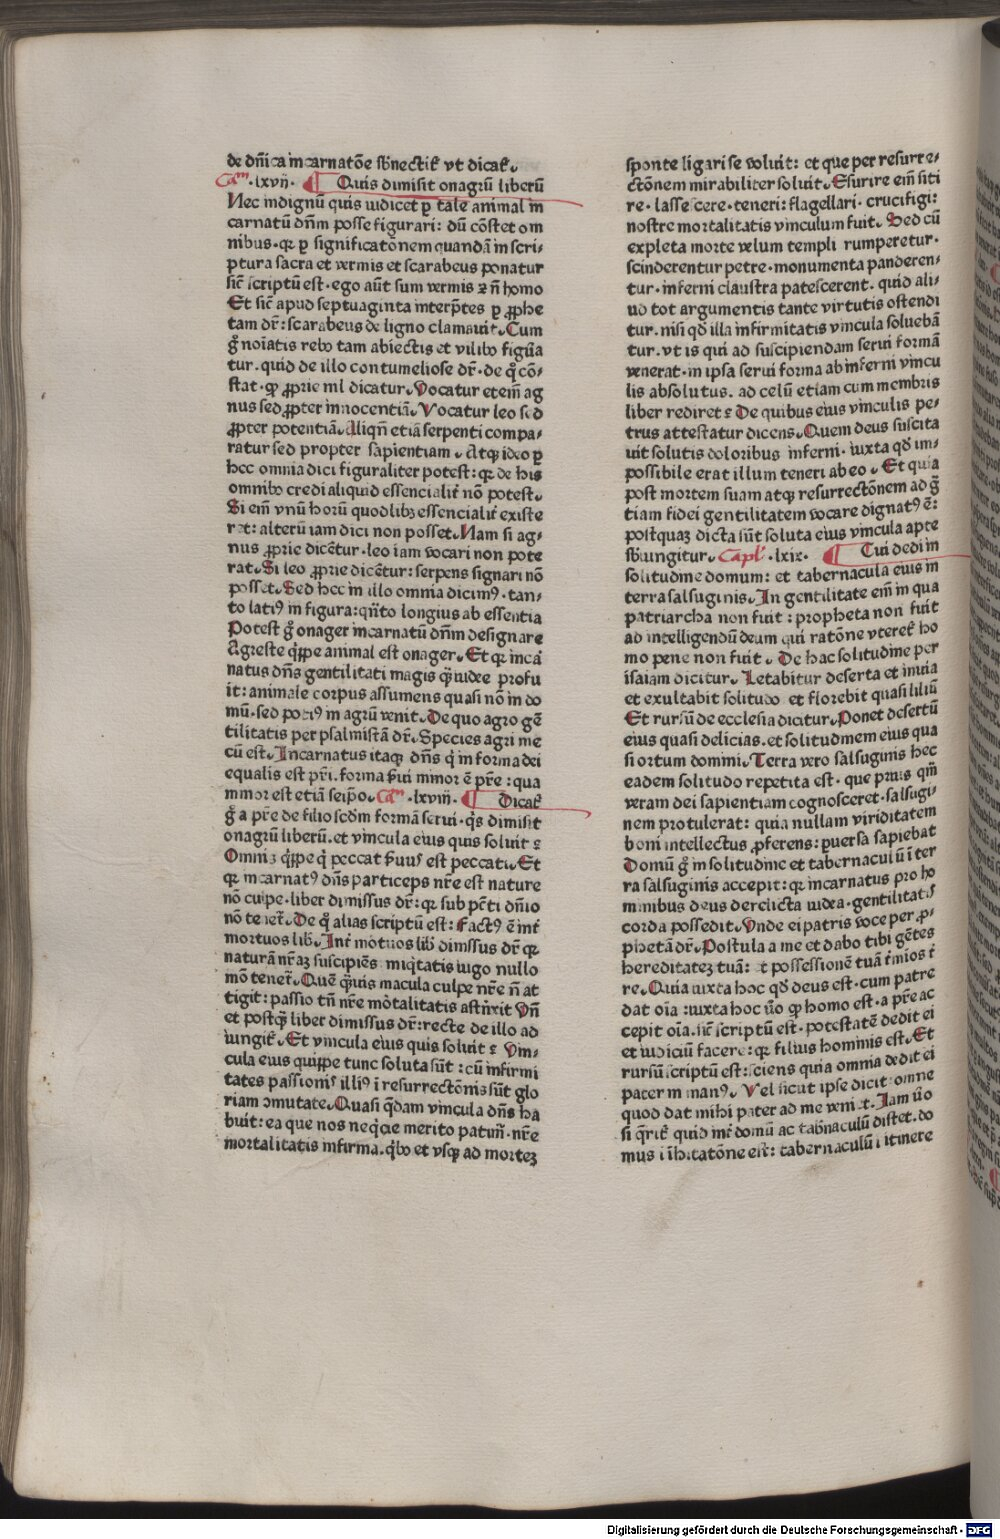 de dñica incarnatõe sb̃nectit̃ vt dicat̃
Cam̃ .lxvij. Quis dimisit onagrũ liberũ
Nec indignũ quis iudicet p tale animal in
carnatũ dñm posse figurari: dũ cõstet om
nibus. qꝛ p significatõnem quandã in scri⸗
ptura sacra et vermis et scarabeus ponatur
sic̃ scriptũ est. ego aũt sum vermis ⁊ nõ homo
Et sic̃ apud septuaginta interp̃tes ꝑ ꝓphe
tam dr̃: scarabeus de ligno clamauit. Cum
g̃ noĩatis rebꝰ tam abiectis et vilibꝰ figũa
tur. quid de illo contumeliose dr̃. de q̃ cõ⸗
stat. qꝙ ꝓprie nil dicatur. Vocatur etem̃ ag
nus sed ꝓpter innocentiã. Vocatur leo sed
ꝓpter potentiã. Aliqñ etiã serpenti compa⸗
ratur sed propter sapientiam. Atqꝫ ideo ꝑ
hec omnia dici figuraliter potest: qꝛ de his
omnibꝰ credi aliquid essencialit̃ nõ potest.
Si em̃ vnũ horũ quodlibꝫ essencialit̃ existe
ret: alterũ iam dici non posset. Nam si ag⸗
nus ꝓprie dicẽtur. leo iam vocari non pote
rat. Si leo ꝓprie dicẽtur: serpens signari nõ
posset. Sed hec in illo omnia dicimꝰ. tan⸗
to latiꝰ in figura: qñto longius ab essentia
Potest g̃ onager incarnatũ dñm designare
Agreste q̃ppe animal est onager. Et qꝛ incar
natus dñs gentilitati magis q̃ iudee profu
it: animale corpus assumens quasi nõ in do
mũ. sed potiꝰ in agrũ venit. De quo agro gẽ
tilitatis per psalmistã dr̃. Species agri me
cũ est. Incarnatus itaqꝫ dñs q̃ in forma dei
equalis est pr̃i. forma s̃ui minor ẽ pr̃e: qua
minor est etiã seip̃o. Cam̃ .lxviij. Dicat̃
g̃ a pr̃e de filio scdm̃ formã serui. q̃s dimisit
onagrũ liberũ. et vincula eius quis soluit ⁊
Omnis q̃ppe q̃ peccat s̃uus est peccati. Et
qꝛ incarnatꝰ dñs particeps nr̃e est nature
nõ culpe. liber dimissus dr̃: qꝛ sub pc̃ti dñio
nõ tenet̃. De q̃ alias scriptũ est: Factꝰ ẽ int̃
mortuos lib̃. Int̃ motuos lib̃ dimissus dr̃ qꝛ
naturã nr̃aꝫ suscipiẽs iniq̃tatis iugo nullo
mõ tenet̃. Quẽ q̃uis macula culpe nr̃e ñ at
tigit: passio tñ nr̃e mõtalitatis astrixit Vñ
et postqꝫ liber dimissus dr̃: recte de illo ad
iungit̃. Et vincula eius quis soluit ⁊ Vin⸗
cula eius quippe tunc soluta sũt: cũ infirmi
tates passionis illiꝰ ĩ resurrectõnis sũt glo
riam ɔmutate. Quasi q̃dam vincula dñs ha
buit: ea que nos neq̃cie merito patim̃. nr̃e
mortalitatis infirma. q̃bꝰ et vsqꝫ ad morteꝫ
sponte ligari se voluit: et que per resurre⸗
ctõnem mirabiliter soluit. Esurire em̃ siti
re. lassescere. teneri: flagellari. crucifigi:
nostre mortalitatis vinculum fuit. Sed cũ
expleta morte velum templi rumperetur.
scinderentur petre. monumenta panderen⸗
tur. inferni claustra patescerent. quid ali⸗
ud tot argumentis tante virtutis ostendi
tur. nisi qd̃ illa infirmitatis vincula soluebã
tur. vt is qui ad suscipiendam serui formã
venerat. in ipsa serui forma ab inferni vincu
lis absolutus. ad celũ etiam cum membris
liber rediret ⁊ De quibus eius vinculis pe⸗
trus attestatur dicens. Quem deus suscita
uit solutis doloribus inferni. iuxta qd̃ im⸗
possibile erat illum teneri ab eo. Et quia
post mortem suam atqꝫ resurrectõnem ad g̃
tiam fidei gentilitatem vocare dignatꝰ ẽ:
postquaꝫ dicta sũt soluta eius vincula apte
sb̃iungitur. Capl̃ .lxix. Cui dedi in
solitudine domum: et tabernacula eius in
terra salsuginis. In gentilitate em̃ in qua
patriarcha non fuit: propheta non fuit
ad intelligendũ deum qui ratõne vteret̃ ho
mo pene non fuit. De hac solitudine per
isaiam dicitur. Letabitur deserta et inuia
et exultabit solitudo et florebit quasi liliũ
Et rursũ de ecclesia dicitur. Ponet desertũ
eius quasi delicias. et solitudinem eius qua
si ortum domini. Terra vero salsuginis hec
eadem solitudo repetita est. que prius qm̃
veram dei sapientiam cognosceret. salsugi⸗
nem protulerat: quia nullam viriditatem
boni intellectus ꝓferens: ꝑuersa sapiebat
Domũ g̃ in solitudine et tabernaculũ ĩ ter
ra salsuginis accepit: qꝛ incarnatus pro ho
minibus deus derelicta iudea. gentilitatis
corda possedit. Vnde ei patris voce per ꝓ⸗
phetã dr̃. Postula a me et dabo tibi gẽtes
hereditateꝫ tuã: et possessionẽ tuã t̃mĩos t̃
re. Quia iuxta hoc qd̃ deus est. cum patre
dat oĩa: iuxta hoc ṽo qꝙ homo est. a pr̃e ac
cepit oĩa. sic̃ scriptũ est. potestatẽ dedit ei
et iudiciũ facere: qꝛ filius hominis est. Et
rursũ scriptũ est: sciens quia omnia dedit ei
pater in manꝰ. Vel sicut ipse dicit: omne
quod dat mihi pater ad me veniet. Iam ṽo
si q̃rit̃ quid int̃ domũ ac tab̃naculũ distet. do
mus ĩ ĩhitatõne est: tabernaculũ ĩ itinere
Digitalisierung gefördert durch die Deutsche Forschungsgemeinschaft - DFG